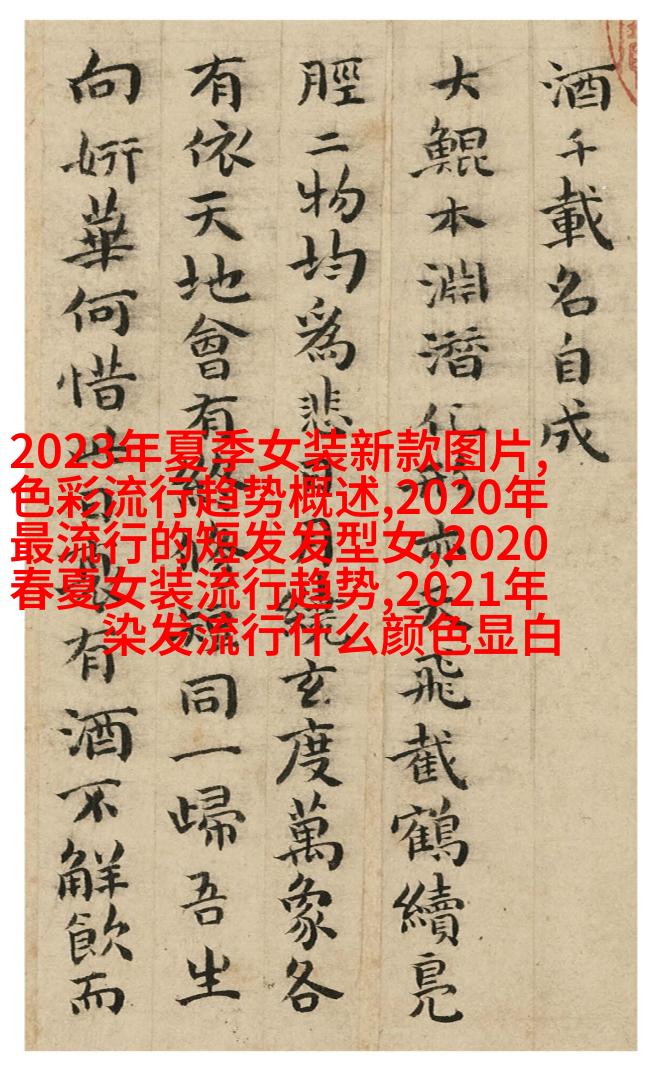 酒千載名自成
大鯤本淵潛化亦飛截鶴續鳧
脛二物均爲悲玄度萬象各
有依天地會有終短同一歸吾生
向妍華何惜有酒不解飲而
2023年夏季女装新款图片,
色彩流行趋势概述,2020年
最流行的短发发型女,2020
春夏女装流行趋势,2021年
染发流行什么颜色显白